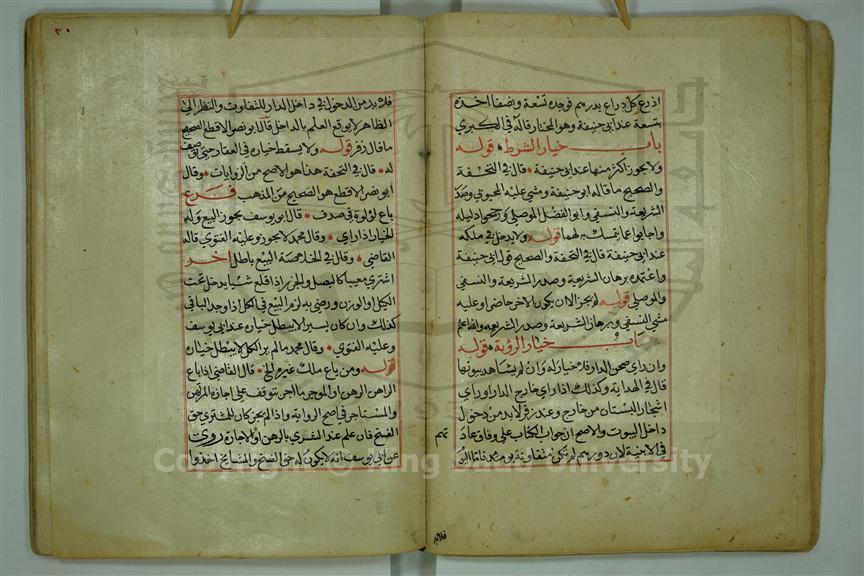 اذرع كل ذراع بدرهم فوجده تسعة ونصفا اخذه
بتسعة عند ابى حنيفة وهو المختار قاله فى الكبرى
باب خيار الشرط قوله
ولا يجوز اكثر منها عند ابى حنيفة قال فى التحفة
والصحيح ما قاله ابو حنيفة ومشى عليه المحبوبي وصدر
الشريعة والنسفي وابو الفضل الموصلي ورجحوا دليله
واجابوا عما تمسك به لهما قوله ولا يدخل فى ملكه
عند ابى حنيفة قال فى التحفة والصحيح قول ابى حنيفة
واعتمده برهان الشريعة وصدر الشريعة والنسفي
والموصلي قوله لم يجز الا ان يكون الاخر حاضرا وعليه
مشى النسفي وبرهان الشريعة وصدر الشريعة والله اعلم
باب خيار الرؤية قوله
وان راى صحن الدار فلا خيار له وان لم يشاهد بيوتها
قال فى الهداية وكذلك اذا راى خارج الدار او راى
اشجار البستان من خارج وعند زفر لا بد من دخول
داخل البيوت والاصح ان جواب الكتاب على وفاق عادتهم
فى الابنية لان دورهم لم تكن متفاوتة يومئذ فاما اليوم
فلا بد
فلا بد من الدخول فى داخل الدار للتفاوت والنظر الى
الظاهر لا يوقع العلم بالداخل قال ابو نصر الاقطع الصحيح
ما قال زفر قوله ولا يسقط خياره فى العقار حتى يوصف
له قال فى التحفة هذا هو الاصح من الروايات وقال
ابو نصر الاقطع هو الصحيح من المذهب فرع
باع لؤلؤة فى صدف قال ابو يوسف يجوز البيع وله
الخيار اذا راى وقال محمد لا يجوز وعليه الفتوى قاله
القاضى وقال فى الخلاصة البيع باطل اخر
اشترى مغيبا كالبصل والجزر اذا قلع شيا يدخل تحت
الكيل او الوزن ورضى به لزم البيع فى الكل اذا وجد الباقى
كذلك وان كان يسيرا لا يبطل خياره عند ابى يوسف
وعليه الفتوى وقال محمد ما لم ير الكل لا يبطل خياره
قوله ومن باع ملك غيره الخ قال القاضى اذا باع
الراهن الرهن او الموجر ما اجر يتوقف على اجازة المرتهن
والمستاجر فى اصح الرواية واذا لم يجز كان للمشترى حق
الفسخ فان علم عند الشرى بالرهن او الاجارة روى
عن ابى يوسف انه لا يكون له حق الفسخ والمشايخ اخذوا
Copyright © King Saud University